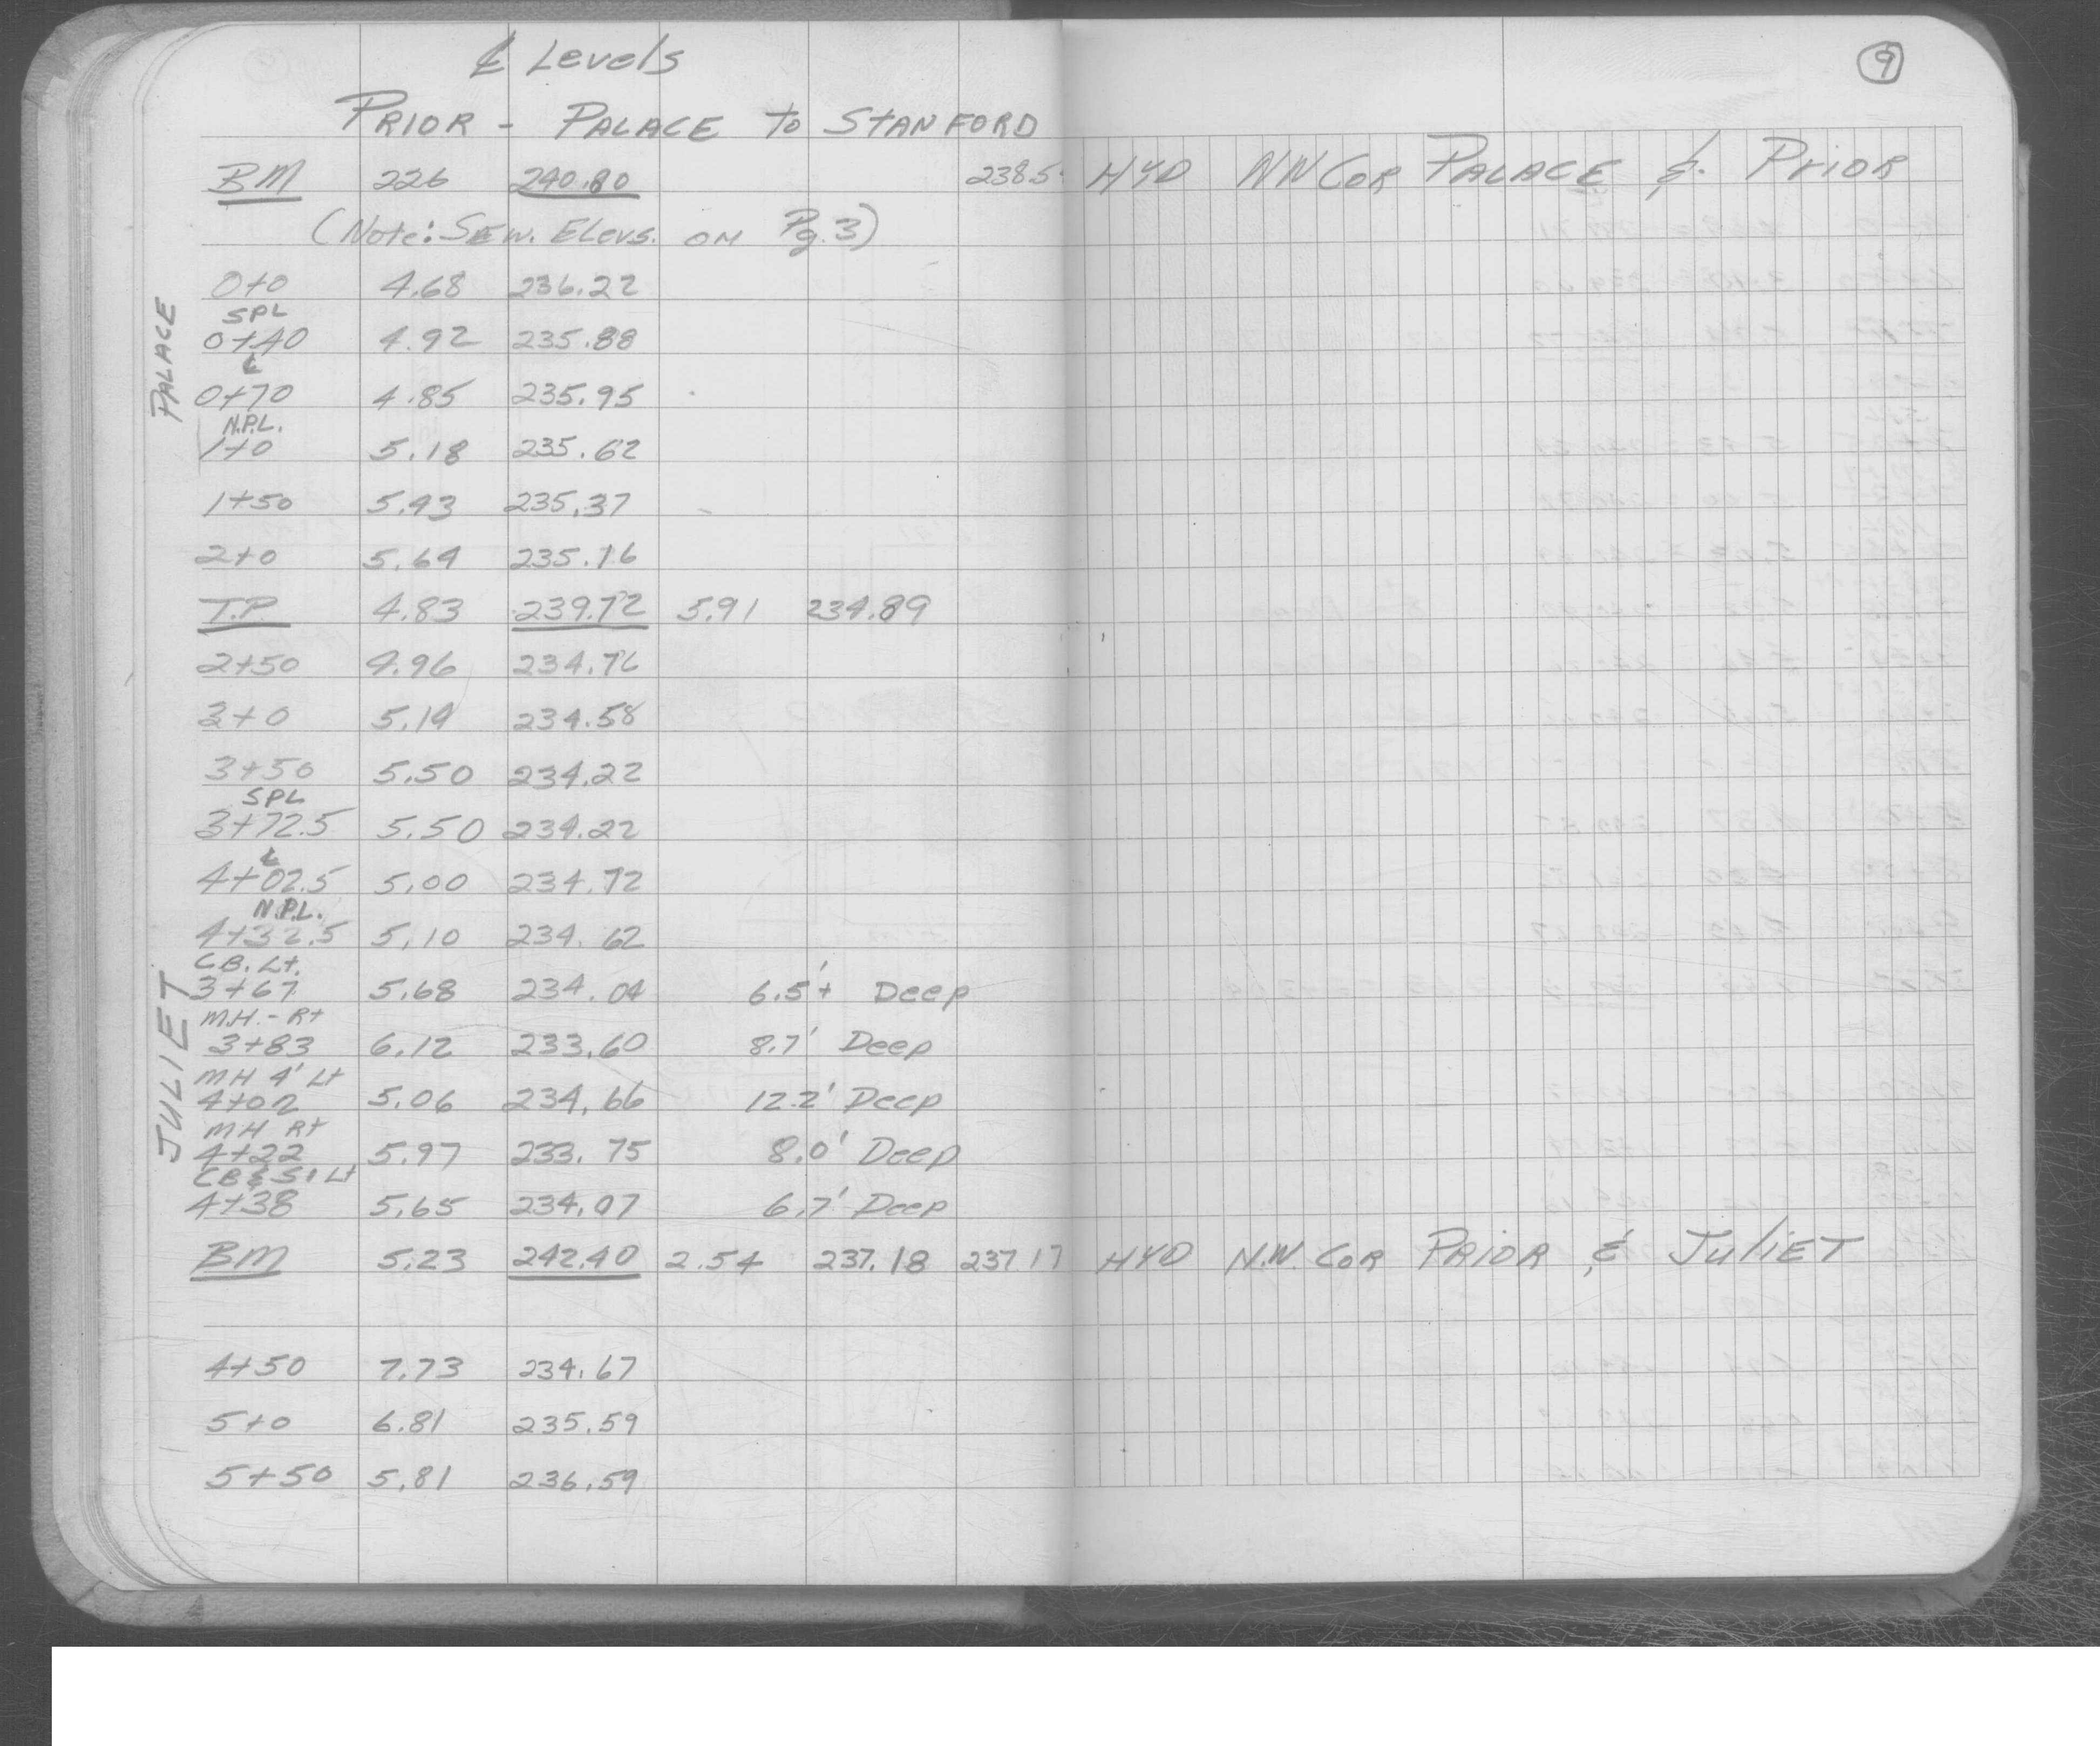 ℄ Levels
9
PRIOR - PALACE to STANFORD
BM 226 240.80 238.5 HYD NW COR PALACE & PRIOR
(Note: SEW. ELevs. on Pg. 3)
PALACE
0+0 4.68 236.22
SPL
0+40 4.92 235.88
℄
0+70 4.85 235.95
N.P.L.
1+0 5.18 235.62
1+50 5.43 235.37
2+0 5.64 235.16
T.P. 4.83 239.72 5.91 234.89
2+50 4.96 234.76
3+0 5.14 234.58
3+50 5.50 234.22
SPL
3+72.5 5.50 234.22
℄
4+02.5 5.00 234.72
N.P.L.
4+32.5 5.10 234.62
JULIET
CB. Lt.
3+67 5.68 234.04 6.5'+ Deep
M.H. - Rt
3+83 6.12 233.60 8.7' Deep
MH 4' Lt
4+02 5.06 234.66 12.2' Deep
MH Rt
4+22 5.97 233.75 8.0' Deep
CB & Lt
4+38 5.65 234.07 6.7' Deep
BM 5.23 242.40 2.54 237.18 237.17 HYD N.W. COR PRIOR & JULIET
4+50 7.73 234.67
5+0 6.81 235.59
5+50 5.81 236.59